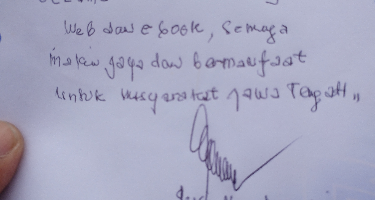 Web dan ebook, semoga
makin jaya dan bermanfaat
untuk masyarakat Jawa Tengah,,